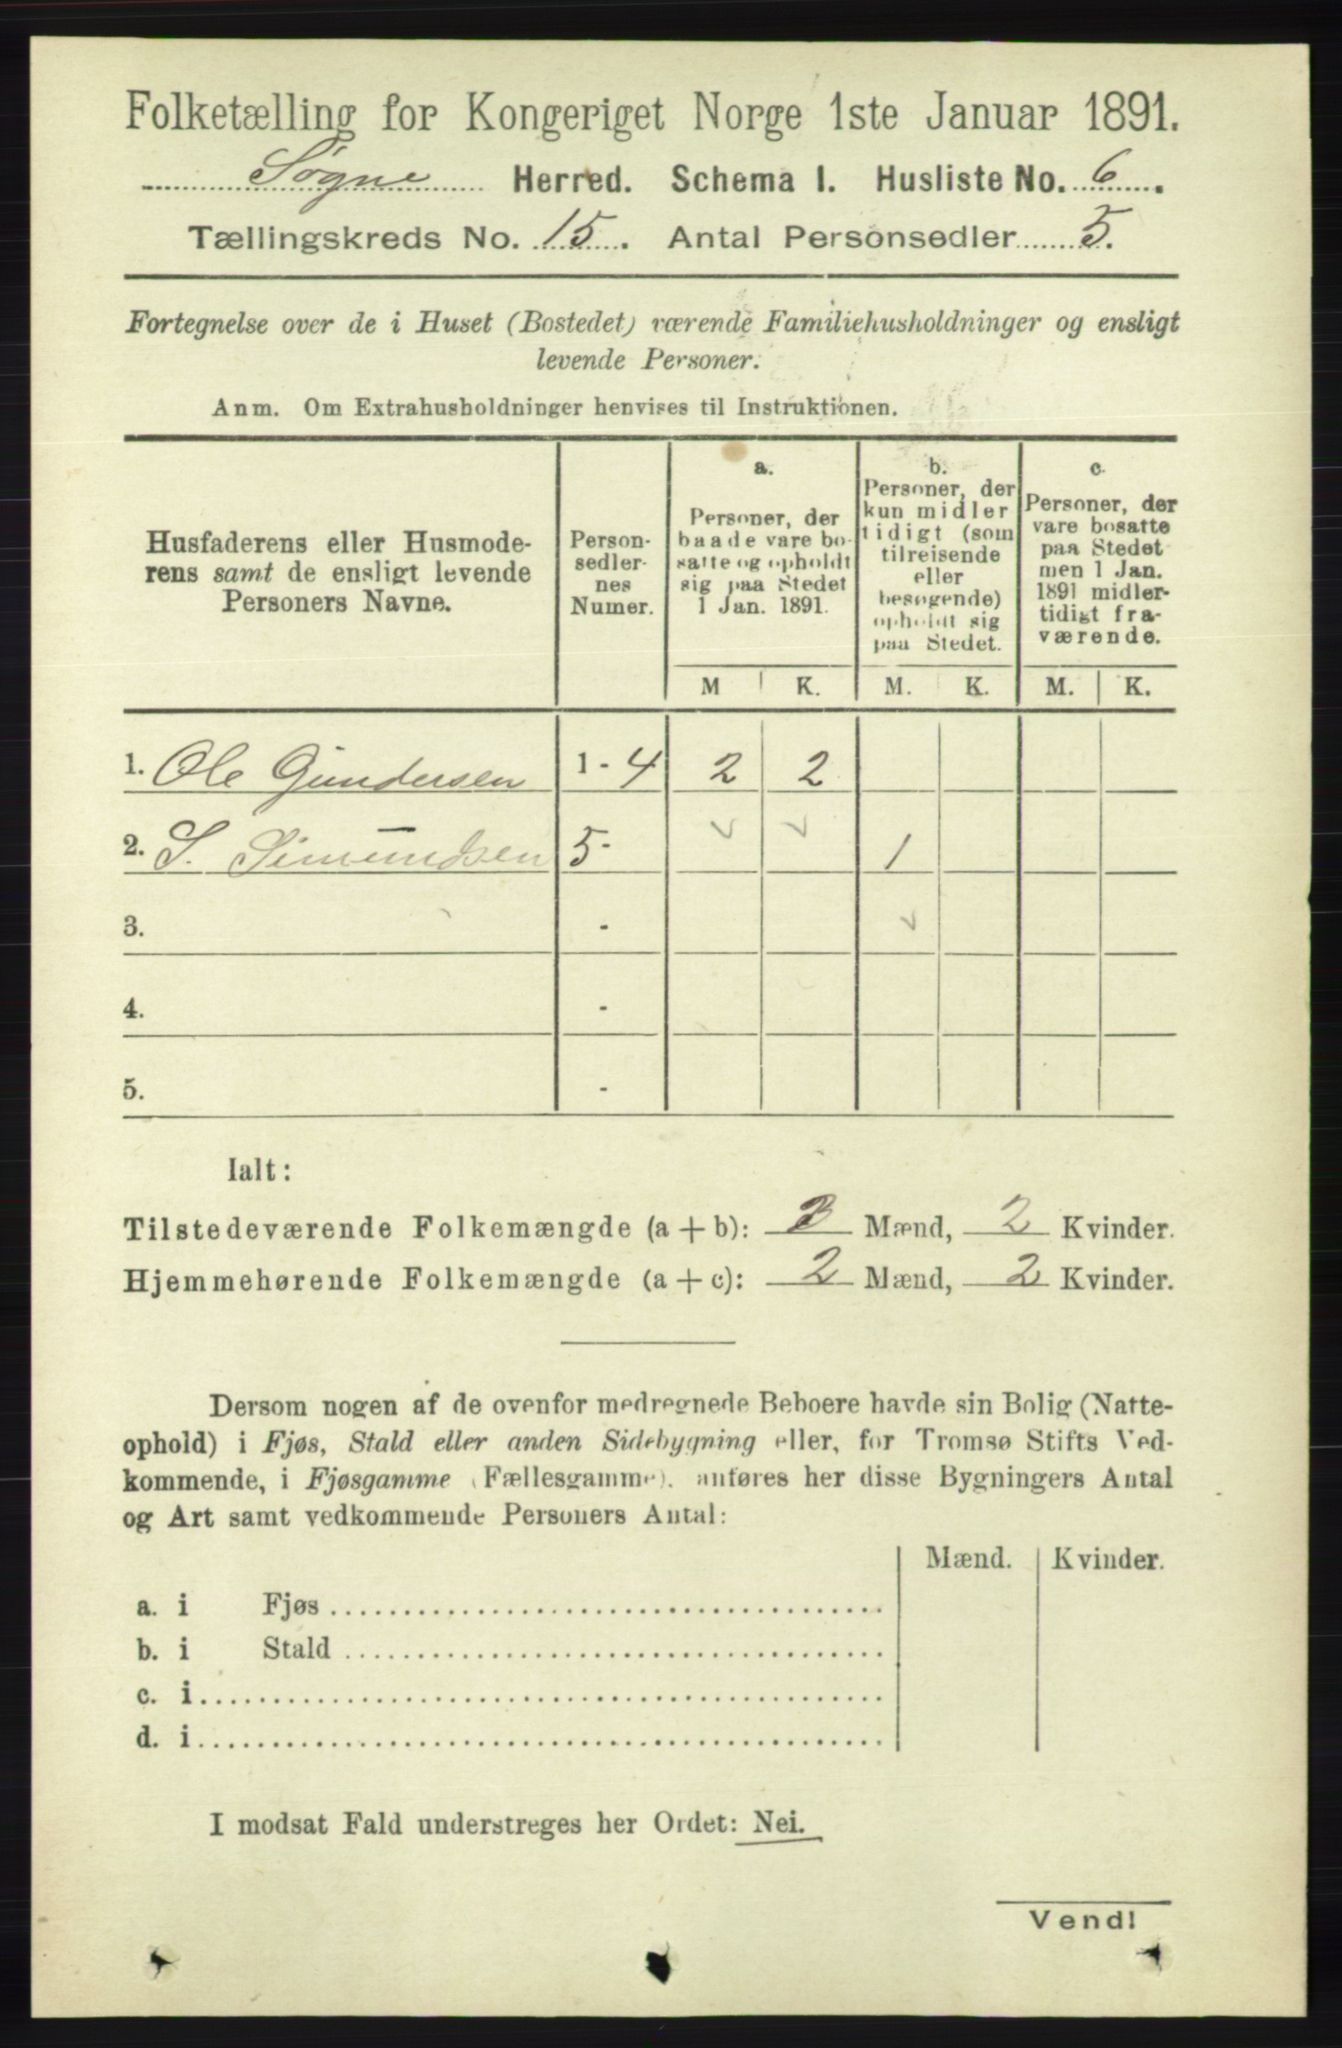 Folketælling for Kongeriget Norge 1ste Januar 1891.
Søgne Herred. Schema I. Husliste No. 6.
Tællingskreds No. 15. Antal Personsedler 5.
Fortegnelse over de i Huset (Bostedet) værende Familiehusholdninger og ensligt
levende Personer.
Anm. Om Extrahusholdninger henvises til Instruktionen.
Husfaderens eller Husmode-
rens samt de ensligt levende
Personers Navne.
Person-
sedler-
nes
Numer.
a.
Personer, der
baade vare bo-
satte og opholdt
sig paa Stedet
1 Jan. 1891.
b.
Personer, der
kun midler
tidigt (som
tilreisende
eller
besøgende)
opholdt sig
paa Stedet.
c.
Personer, der
vare bosatte
paa Stedet
men 1 Jan.
1891 midler-
tidigt fra-
værende.
M K. M. K. M. K.
1. Ole Gundersen 1 - 4 2 2
2. S. Simundsen 5 - 1
3. -
4. -
5. -
Ialt:
Tilstedeværende Folkemængde (a + b): 3 Mænd, 2 Kvinder.
Hjemmehørende Folkemængde (a + c): 2 Mænd, 2 Kvinder.
Dersom nogen af de ovenfor medregnede Beboere havde sin Bolig (Natte-
ophold) i Fjøs, Stald eller anden Sidebygning eller, for Tromsø Stifts Ved-
kommende, i Fjøsgamme (Fællesgamme), anføres her disse Bygningers Antal
og Art samt vedkommende Personers Antal:
Mænd. Kvinder.
a. i Fjøs
b. i Stald
c. i
d. i
I modsat Fald understreges her Ordet: Nei.
Vend!